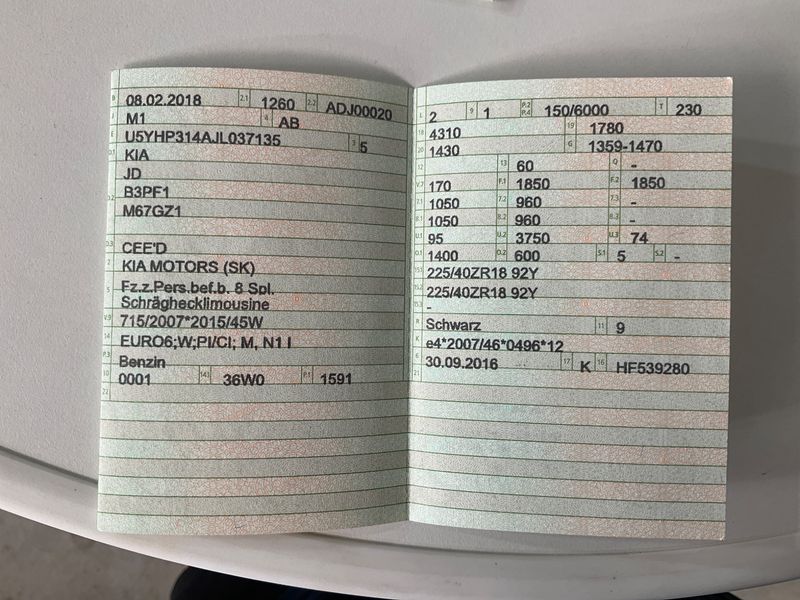 B 08.02.2018 2.1 1260 2.2 ADJ00020
J M1 4 AB
E U5YHP314AJL037135 3 5
D.1 KIA
JD
D.2 B3PF1
M67GZ1
D.3 CEE'D
2 KIA MOTORS (SK)
5 Fz.z.Pers.bef.b. 8 Spl.
Schräghecklimousine
V.9 715/2007*2015/45W
14 EURO6;W;PI/CI; M, N1 I
P.3 Benzin
10 0001 14.1 36W0 P.1 1591
22
L 2 9 1 P.2 P.4 150/6000 T 230
18 4310 19 1780
20 1430 G 1359-1470
12 13 60 Q -
V.7 170 F.1 1850 F.2 1850
7.1 1050 7.2 960 7.3 -
8.1 1050 8.2 960 8.3 -
U.1 95 U.2 3750 U.3 74
O.1 1400 O.2 600 S.1 5 S.2 -
15.1 225/40ZR18 92Y
15.2 225/40ZR18 92Y
15.3 -
R Schwarz 11 9
K e4*2007/46*0496*12
6 30.09.2016 17 K 16 HF539280
21